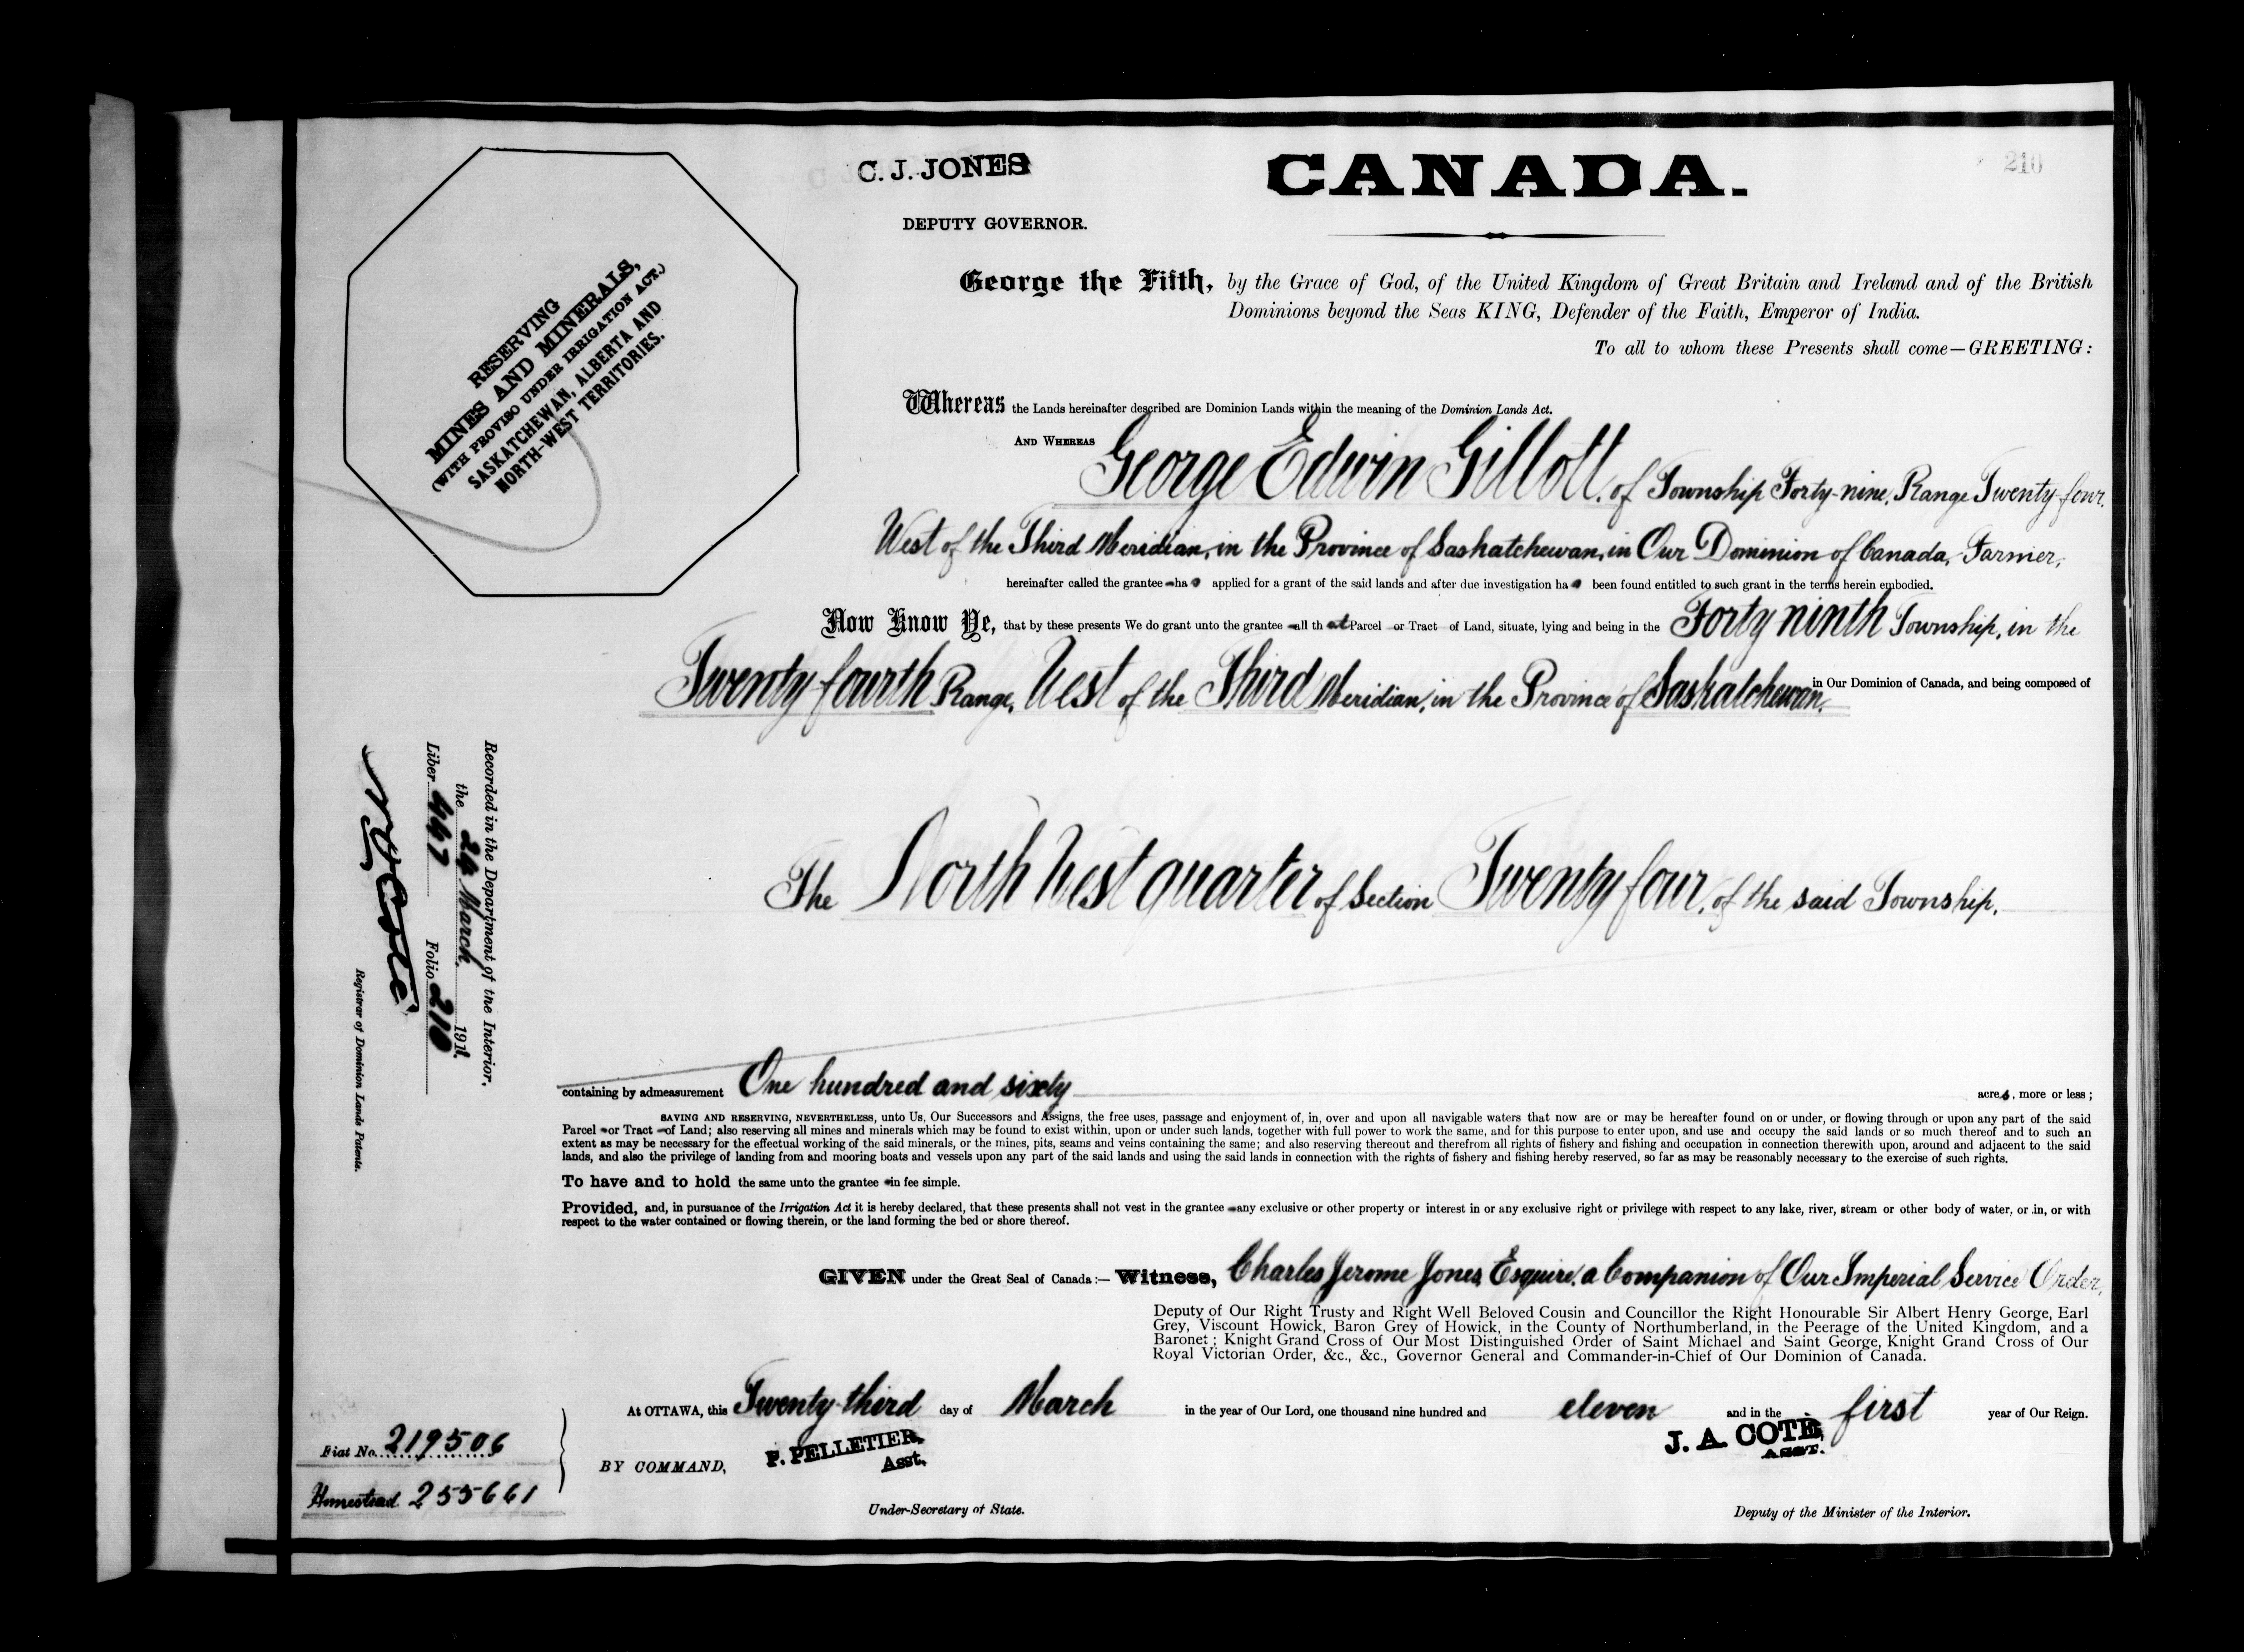 C. J. JONES
DEPUTY GOVERNOR.
CANADA.
210
RESERVING
MINES AND MINERALS,
(WITH PROVISO UNDER IRRIGATION ACT.)
SASKATCHEWAN, ALBERTA AND
NORTH-WEST TERRITORIES.
George the Fifth, by the Grace of God, of the United Kingdom of Great Britain and Ireland and of the British
Dominions beyond the Seas KING, Defender of the Faith, Emperor of India.
To all to whom these Presents shall come—GREETING:
Whereas the Lands hereinafter described are Dominion Lands within the meaning of the Dominion Lands Act.
AND WHEREAS George Edwin Gillott, of Township Forty-nine, Range Twenty-four,
West of the Third Meridian, in the Province of Saskatchewan, in Our Dominion of Canada, Farmer,
hereinafter called the grantee ha applied for a grant of the said lands and after due investigation ha been found entitled to such grant in the terms herein embodied.
Now Know Ye, that by these presents We do grant unto the grantee all that Parcel or Tract of Land, situate, lying and being in the Forty ninth Township, in the
Twenty fourth Range, West of the Third Meridian, in the Province of Saskatchewan, in Our Dominion of Canada, and being composed of
The North West quarter of Section Twenty four, of the said Township.
Recorded in the Department of the Interior,
the 29 March 1911.
Liber 447 Folio 210
N O Coté
Registrar of Dominion Lands Patents.
containing by admeasurement One hundred and sixty acres, more or less;
SAVING AND RESERVING, NEVERTHELESS, unto Us, Our Successors and Assigns, the free uses, passage and enjoyment of, in, over and upon all navigable waters that now are or may be hereafter found on or under, or flowing through or upon any part of the said
Parcel or Tract of Land; also reserving all mines and minerals which may be found to exist within, upon or under such lands, together with full power to work the same, and for this purpose to enter upon, and use and occupy the said lands or so much thereof and to such an
extent as may be necessary for the effectual working of the said minerals, or the mines, pits, seams and veins containing the same; and also reserving thereout and therefrom all rights of fishery and fishing and occupation in connection therewith upon, around and adjacent to the said
lands, and also the privilege of landing from and mooring boats and vessels upon any part of the said lands and using the said lands in connection with the rights of fishery and fishing hereby reserved, so far as may be reasonably necessary to the exercise of such rights.
To have and to hold the same unto the grantee in fee simple.
Provided, and, in pursuance of the Irrigation Act it is hereby declared, that these presents shall not vest in the grantee any exclusive or other property or interest in or any exclusive right or privilege with respect to any lake, river, stream or other body of water, or in, or with
respect to the water contained or flowing therein, or the land forming the bed or shore thereof.
GIVEN under the Great Seal of Canada:— Witness, Charles Jerome Jones, Esquire, a Companion of Our Imperial Service Order,
Deputy of Our Right Trusty and Right Well Beloved Cousin and Councillor the Right Honourable Sir Albert Henry George, Earl
Grey, Viscount Howick, Baron Grey of Howick, in the County of Northumberland, in the Peerage of the United Kingdom, and a
Baronet; Knight Grand Cross of Our Most Distinguished Order of Saint Michael and Saint George, Knight Grand Cross of Our
Royal Victorian Order, &c., &c., Governor General and Commander-in-Chief of Our Dominion of Canada.
At OTTAWA, this Twenty-third day of March in the year of Our Lord, one thousand nine hundred and eleven and in the first year of Our Reign.
BY COMMAND,
P. PELLETIER,
Asst.
Under-Secretary of State.
J. A. COTÉ,
ASST.
Deputy of the Minister of the Interior.
Fiat No. 219506
Homestead 255661